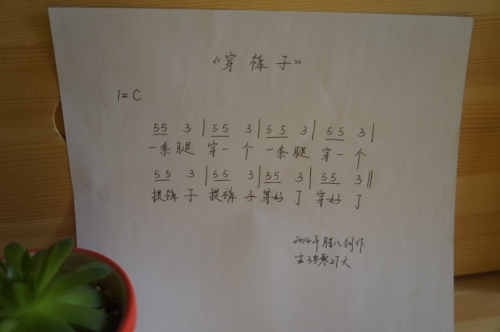 “穿裤子”
1=C
55 3 | 55 3 | 55 3 | 55 3 |
一条腿 穿一个 一条腿 穿一个
55 3 | 55 3 | 55 3 | 55 3 ||
提裤子 提裤子 穿好了 穿好了
2014年腊八创作
27天